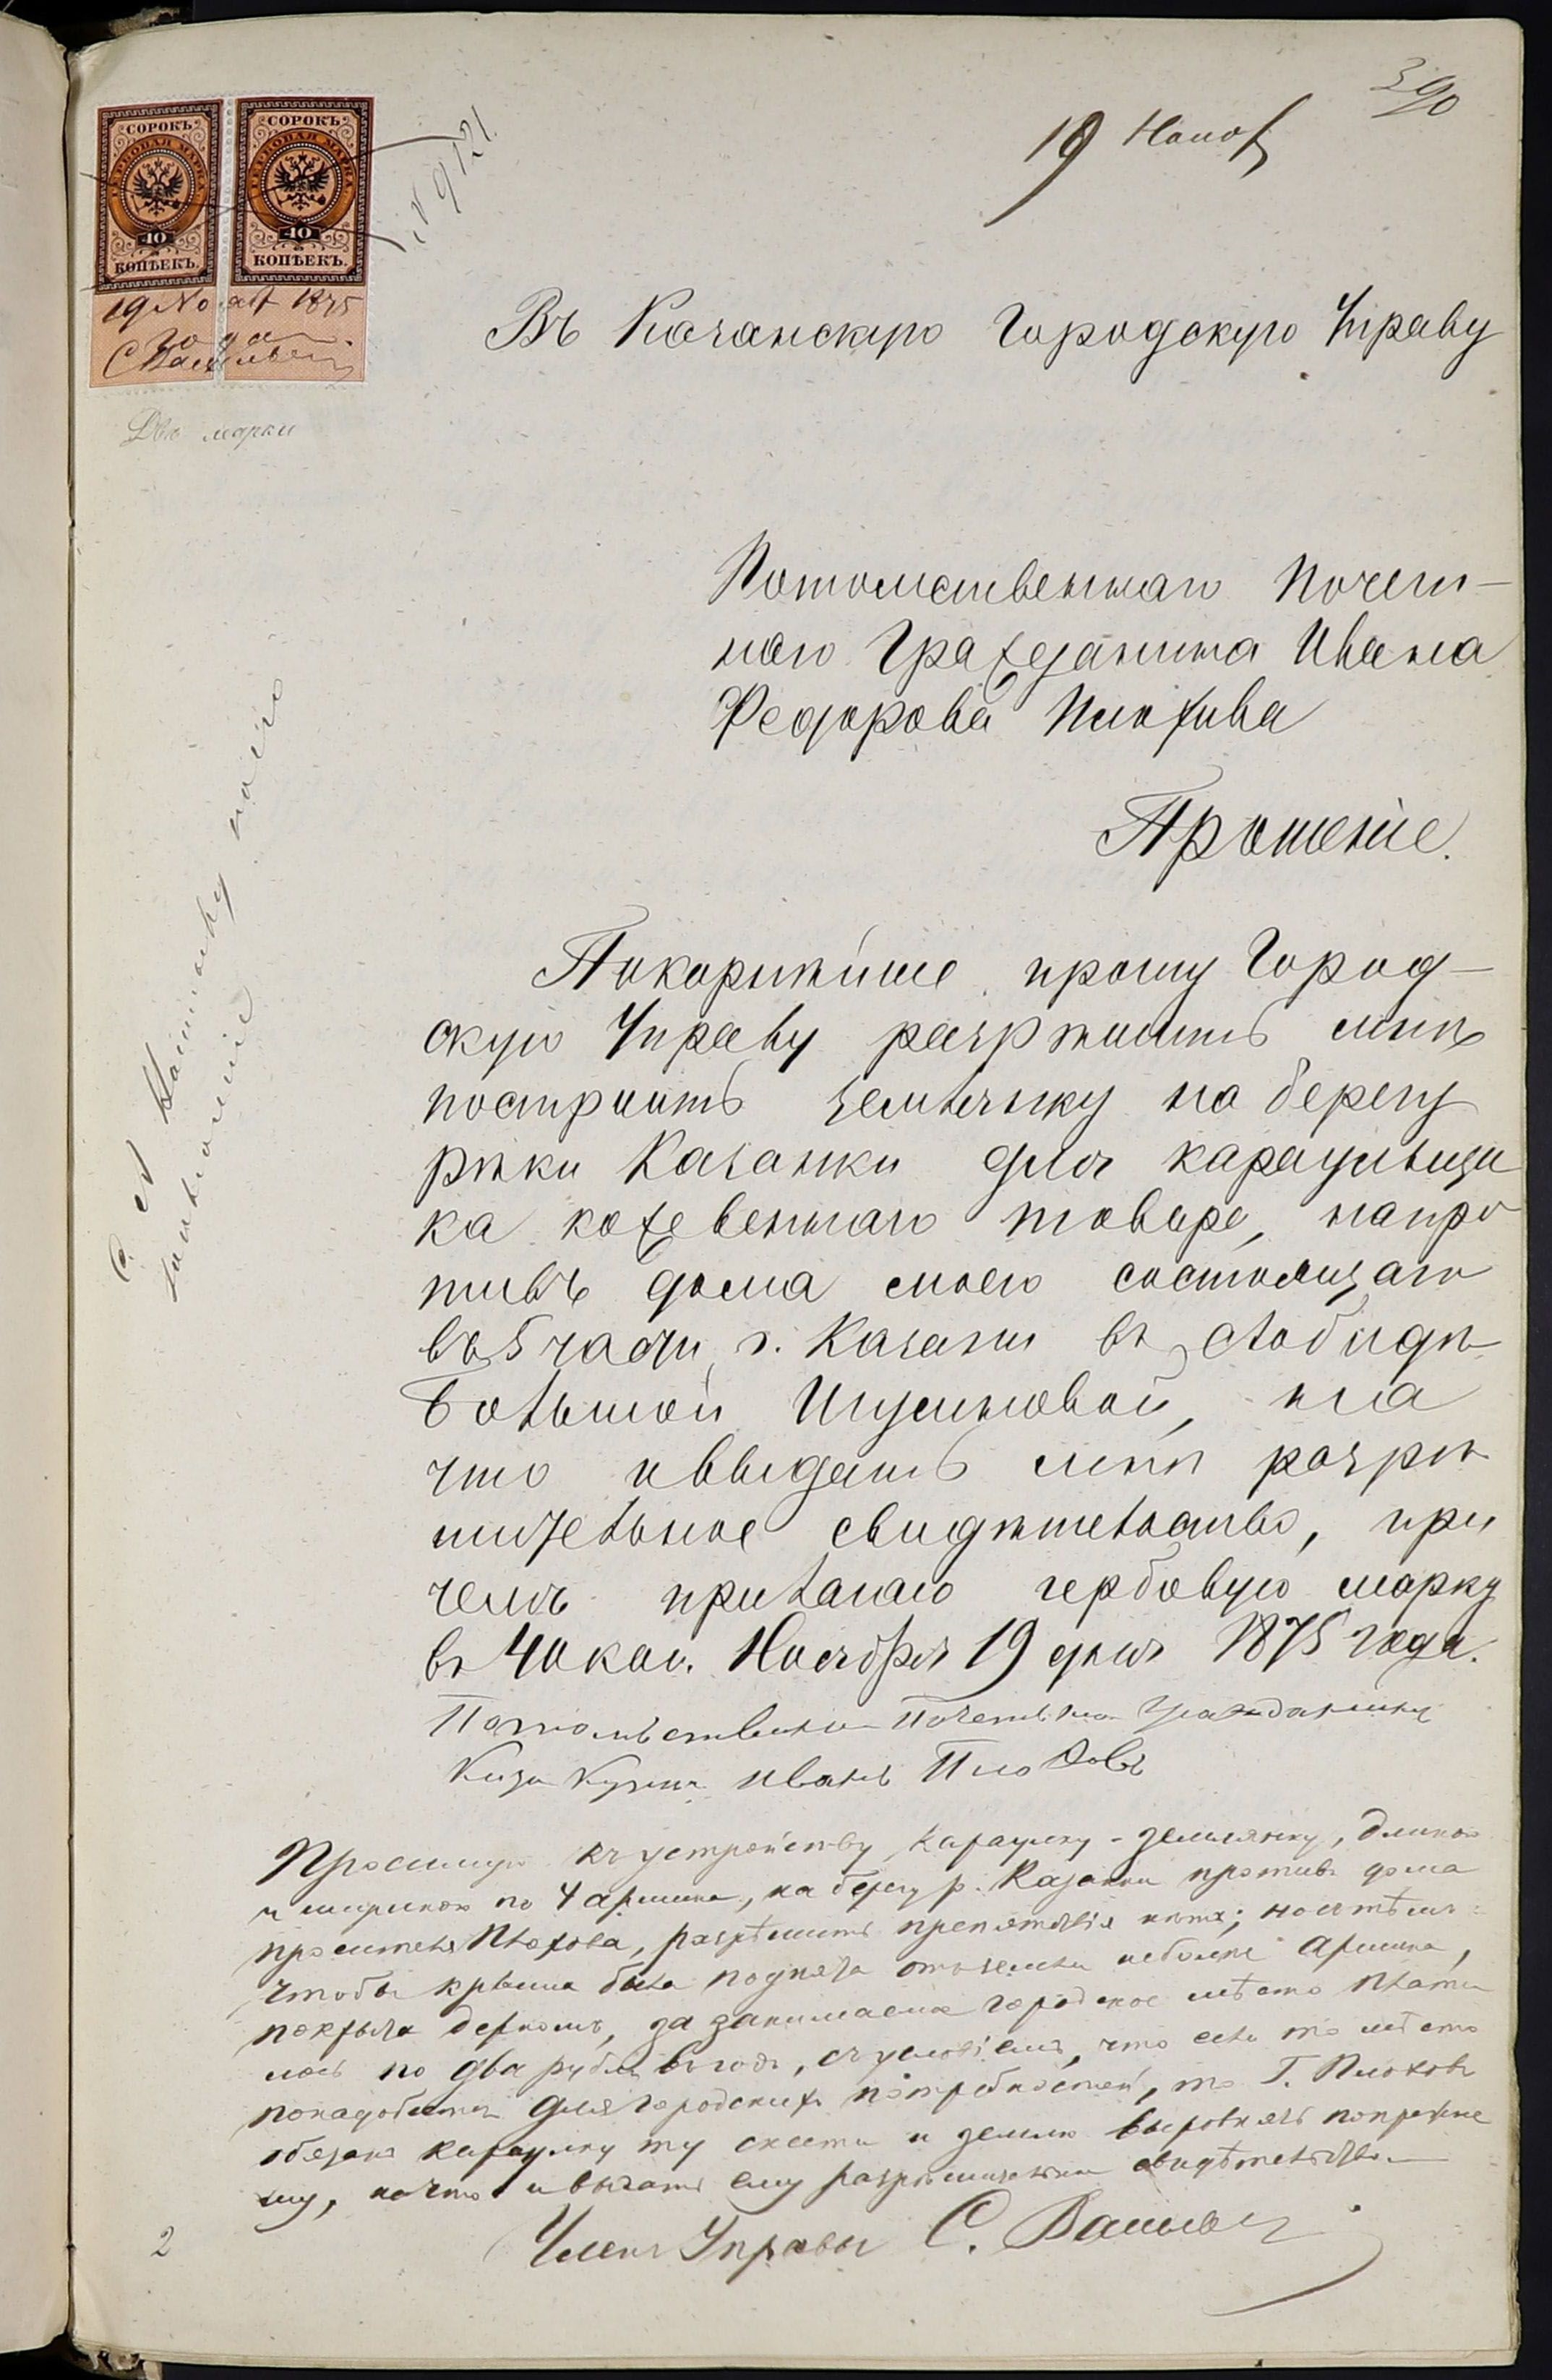 390
19 Нояб
СОРОКЪ
ГЕРБОВАЯ МАРКА
40
КОПѢЕКЪ.
СОРОКЪ
ГЕРБОВАЯ МАРКА
40
КОПѢЕКЪ.
19 Нояб 1875
года
С Васильевъ
Двѣ марки
Въ Казанскую Городскую Управу
Потомственнаго Почет-
наго Гражданина Ивана
Федорова Плохова
Прошеніе.
Покорнѣйше прошу Город-
скую Управу разрѣшить мнѣ
построить землянку на берегу
рѣки Казанки для караульщи
ка кожевеннаго товара, напро
тивъ дома моего состоящаго
въ 5 части г. Казани въ слободѣ
Большой Игумновой, на
что и выдать мнѣ разрѣ
шительное свидѣтельство, при
чемъ прилагаю гербовую марку
въ 40 коп. Ноября 19 дня 1875 года.
Иванъ Плоховъ
къ устройству караулку-землянку, длиною
и шириною по 4 аршина, на берегу р. Казанки противъ дома
просителя Плохова, разрѣшить препятствія нѣтъ; но съ тѣмъ
чтобы крыша была поднята отъ земли неболѣе аршина,
покрыта дерномъ, за занимаемое городское мѣсто плати
лось по два рубля въ годъ, съ условіемъ, что если то мѣсто
понадобится для городскихъ потребностей, то Г. Плоховъ
обязанъ караулку ту снести и землю выровнять попрежне
му, на что и выдать ему разрѣшительное свидѣтельство.
Членъ Управы С. Васильевъ
2